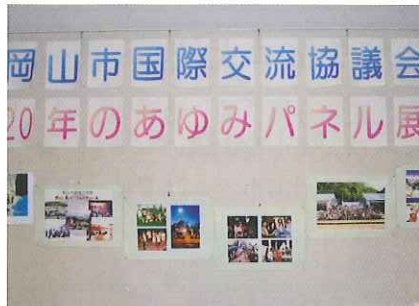 岡山市国際交流協議会
20年のあゆみパネル展